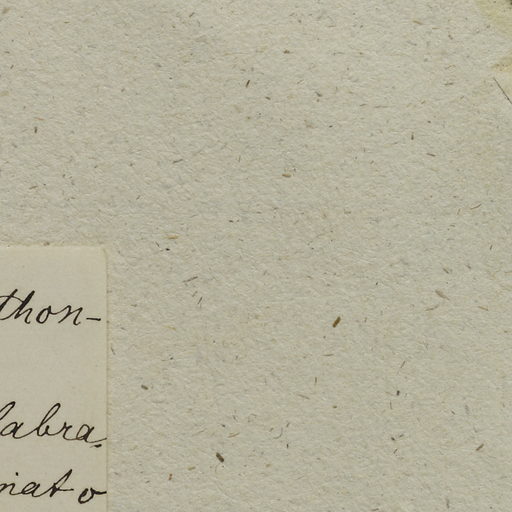 thon-
labra.
nato